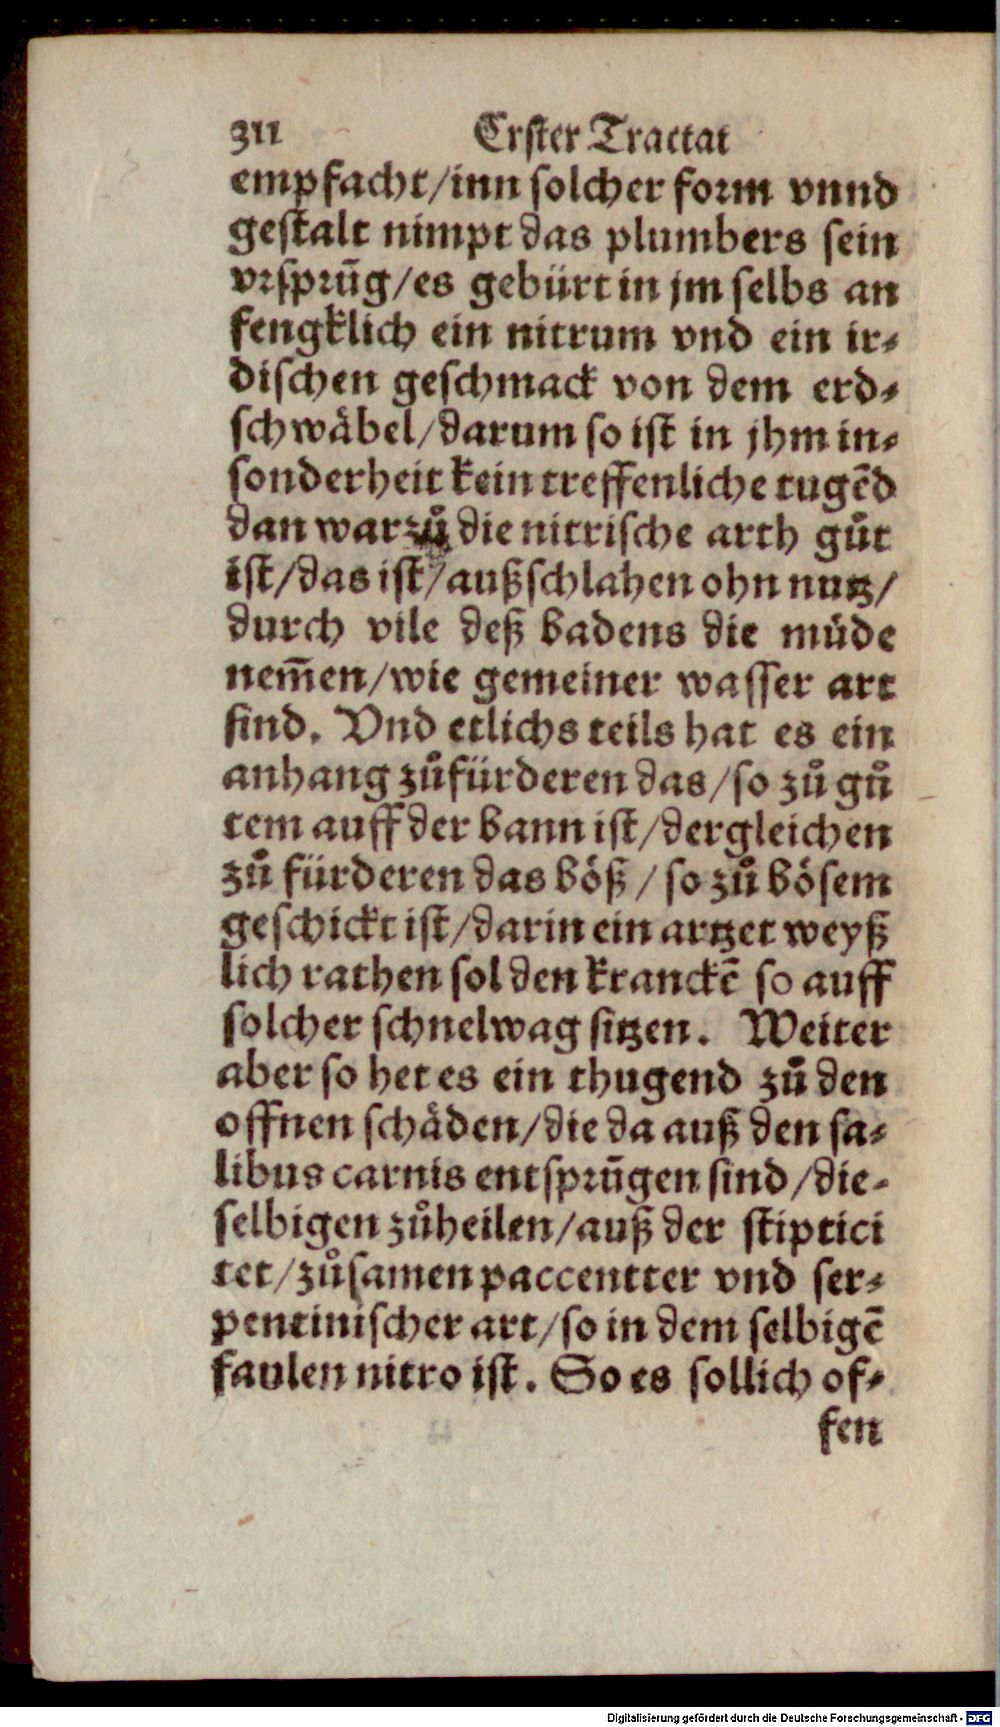 311 Erster Tractat
empfacht/inn solcher form vnnd
gestalt nimpt das plumbers sein
vrsprūg/es gebürt in jm selbs an
fengklich ein nitrum vnd ein ir⸗
dischen geschmack von dem erd⸗
schwåbel/darum so ist in jhm in⸗
sonderheit kein treffenliche tugēd
dan war zů die nitrische arth gůt
ist/das ist/außschlahen ohn nutz/
durch vile deß badens die müde
nem̄en/wie gemeiner wasser art
sind. Vnd etlichs teils hat es ein
anhang zůfürderen das/so zů gů
tem auff der bann ist/dergleichen
zů fürderen das böß/so zů bösem
geschickt ist/darin ein artzet weyß
lich rathen sol den kranckē so auff
solcher schnelwag sitzen. Weiter
aber so het es ein thugend zů den
offnen schåden/die da auß den sa⸗
libus carnis entsprūgen sind/die⸗
selbigen zůheilen/auß der stiptici
tet/zůsamen paccentter vnd ser⸗
pentinischer art/so in dem selbigē
faulen nitro ist. So es sollich of⸗
fen
Digitalisierung gefördert durch die Deutsche Forschungsgemeinschaft - DFG